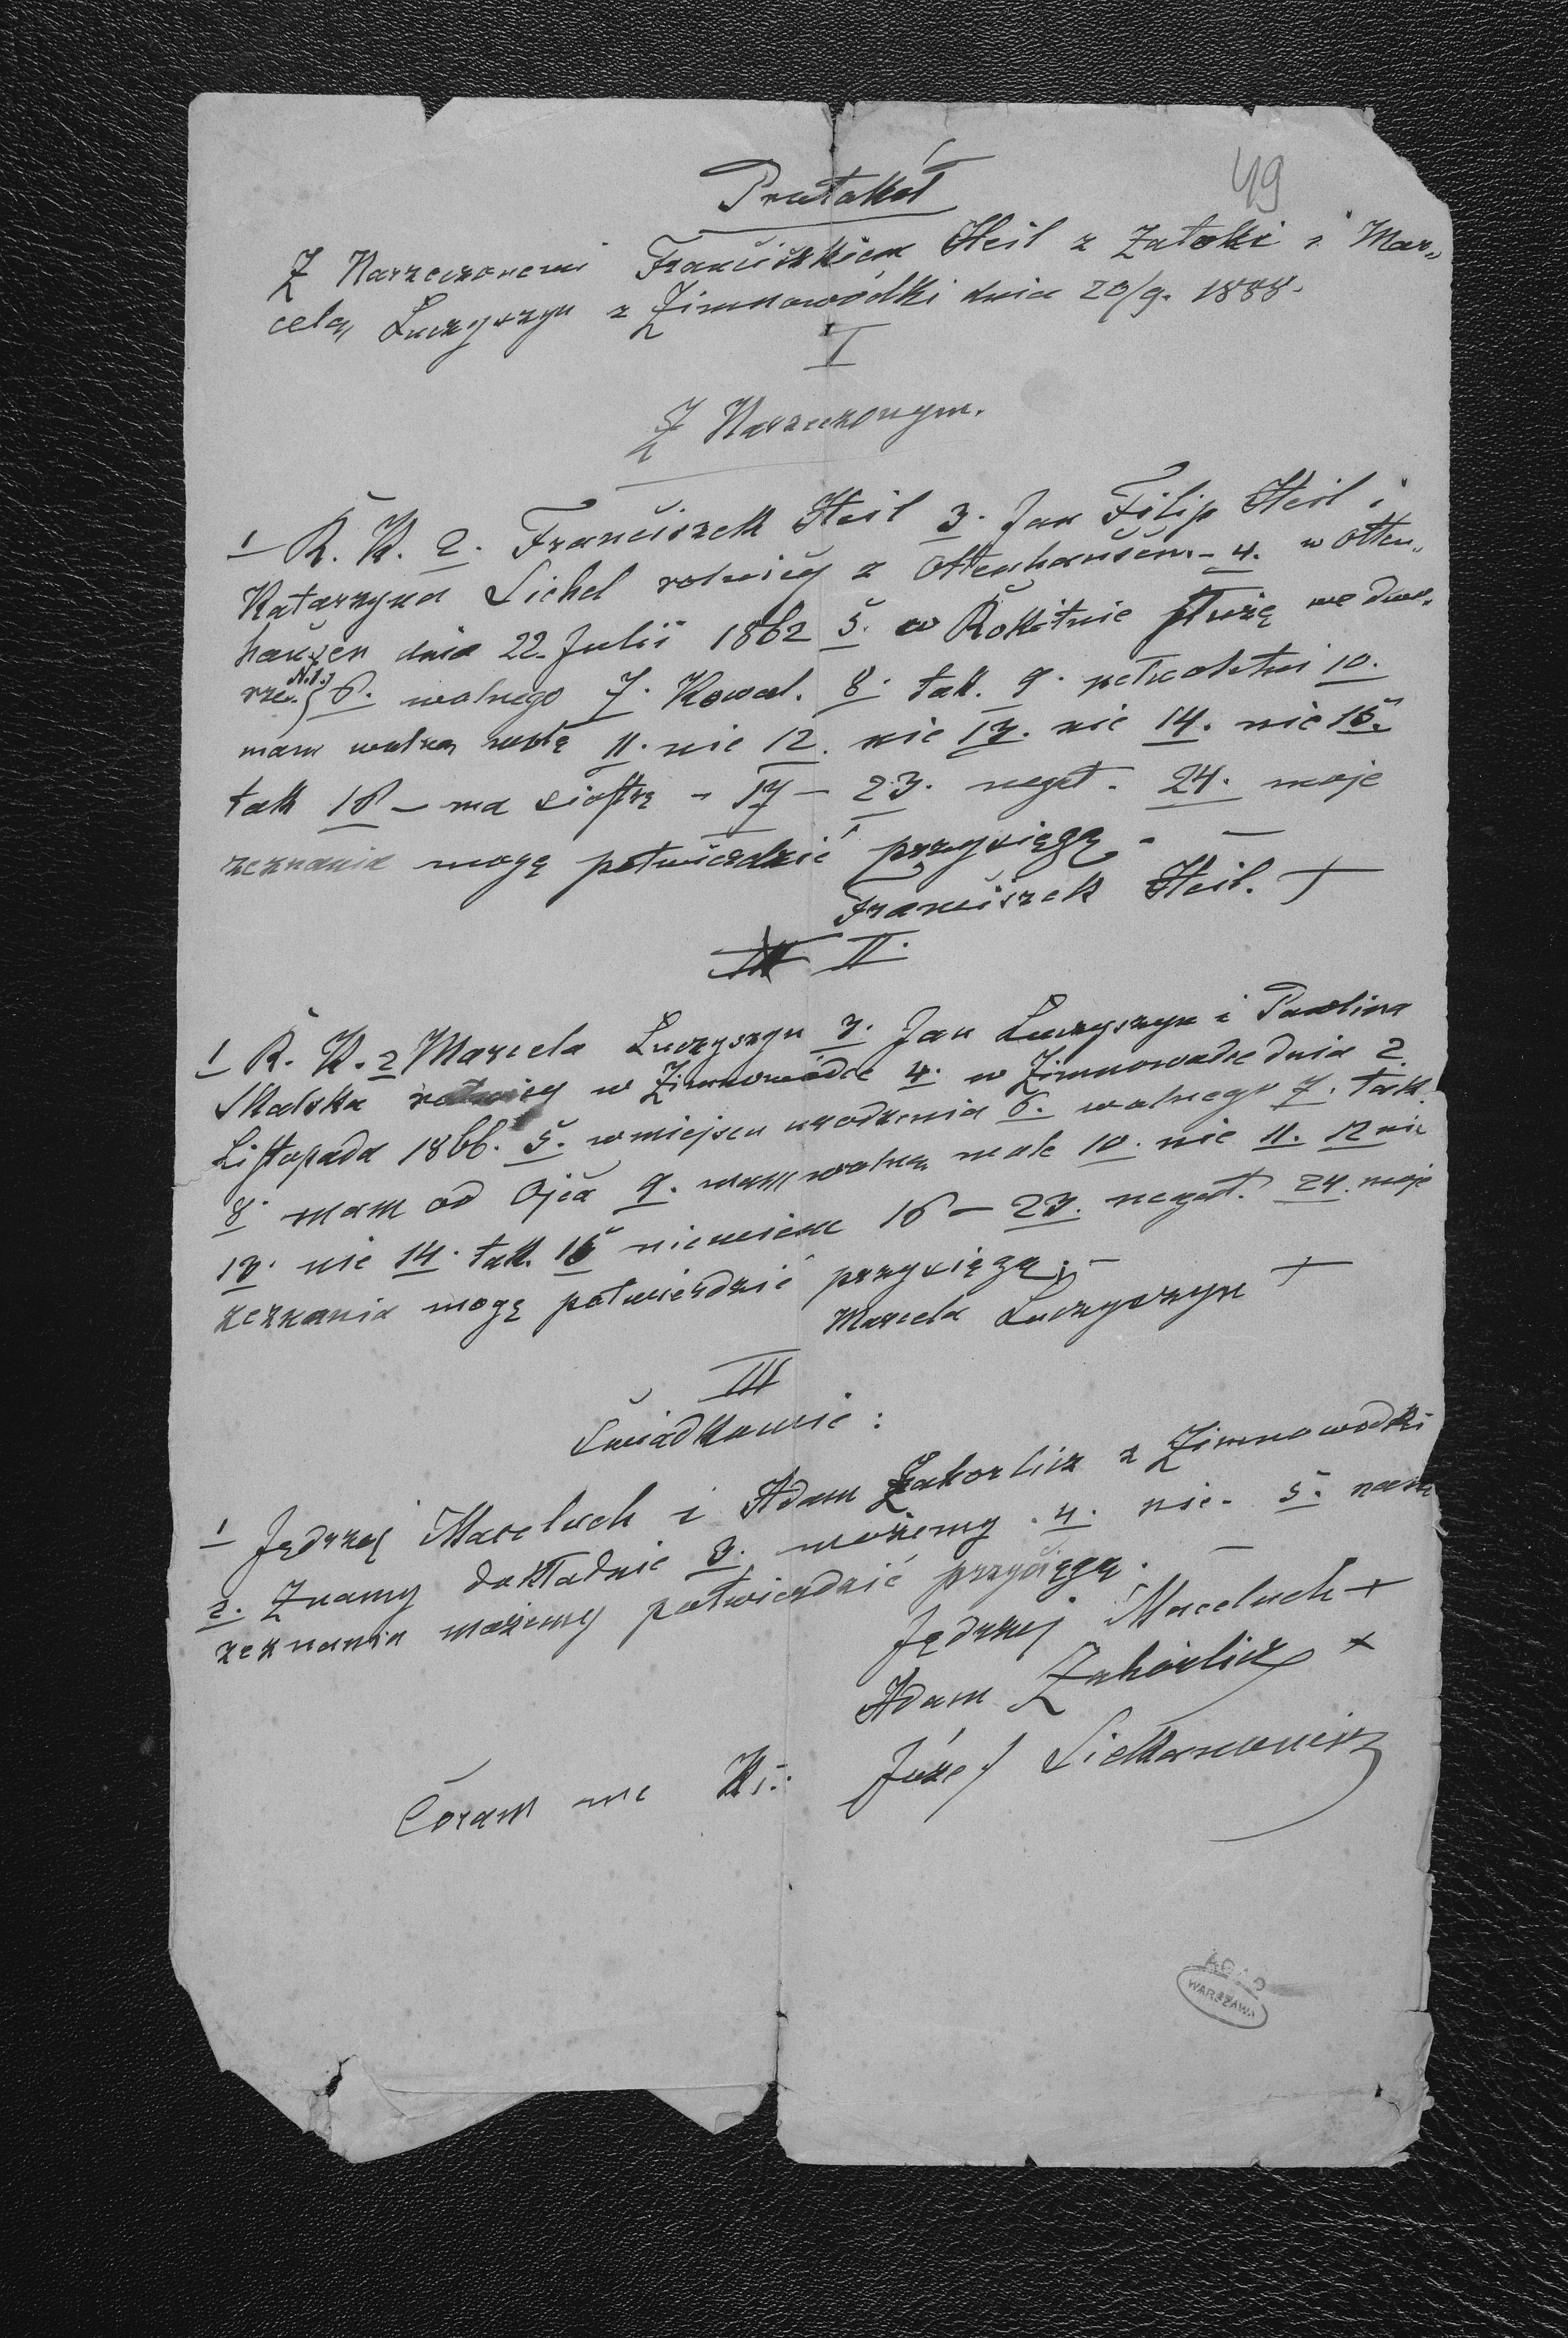 49
Protokół
Z Narzeczonemi Franciszkiem Heil z Zatoki i Mar„
celą Łuczyszyn z Zimnowódki dnia 20/9. 1888.
I
Z Narzeczonym.
1 R. K. 2. Franciszek Heil 3. Jan Filip Heil i
Katarzyna Lichel rolnicy z Ottenhausen. - 4. w Otten„
hausen dnia 22. Julii 1862 5. w Rokitnie służę we dwo„
rze. N.1. 6. wolnego 7. Kowal. 8. tak. 9. pełnoletni 10.
mam wolną wolę 11. nie 12. nie 13. nie 14. nie 15.
tak 16 – ma siostrę – 17 – 23. negat. 24. moje
zeznania mogę potwierdzić przysięgą. –
Franciszek Heil. +
II.
1 R. K. 2 Marcela Łuczyszyn 3. Jan Łuczyszyn i Paulina
Skalska rolnicy w Zimnowódce 4. w Zimnowodce dnia 2
Listopada 1866. 5. w miejscu urodzenia 6. wolnego 7. tak.
8. mam od Ojca 9. mam wolną wole 10. nie 11. 12 nie
13. nie 14. tak. 15 niewiem 16 – 23. negat. 24. moje
zeznania mogę potwierdzić przysięgą. –
Marcela Łuczyszyn +
III
Świadkowie:
1 Jędrzej Maceluch i Adam Zahorlicz z Zimnowodki
2. Znamy dokładnie 3. możemy. 4. nie. 5. nasze
zeznania możemy potwierdzić przysięgą. –
Jędrzej Maceluch +
Adam Zahorlicz +
Coram me Ks.: Józef Siekanowicz
AGAD
WARSZAWA